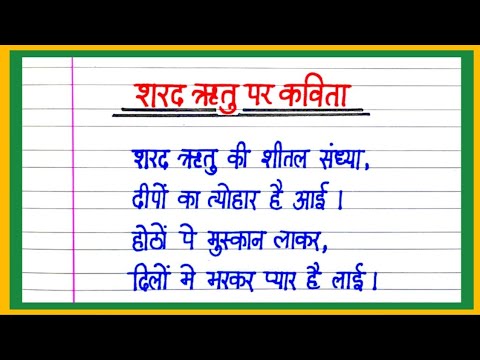 शरद ऋतु पर कविता
शरद ऋतु की शीतल संध्या,
दीपों का त्योहार है आई।
होठों पे मुस्कान लाकर,
दिलों मे भरकर प्यार है लाई।